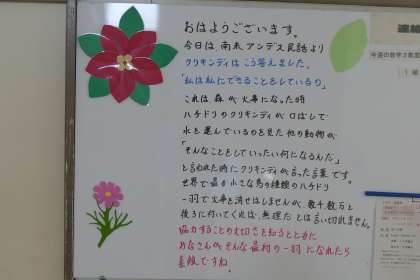 おはようございます。
今日は南米アンデス民話より
クリキンディはこう答えました。
「私は私にできることをしているの」
これは森が火事になった時
ハチドリのクリキンディが口ばしで
水を運んでいるのを見た他の動物が
「そんなことをしていったい何になるんだ」
と言われた時にクリキンディが言った言葉です。
世界で最も小さな鳥の種類のハチドリ
一羽で火事を消せはしませんが、数千数万と
後ろに付いてくれば、無理だとは言い切れません。
協力することの大切さを知るとともに
みなさんがそんな最初の一羽になれたら
素敵ですね。
連絡